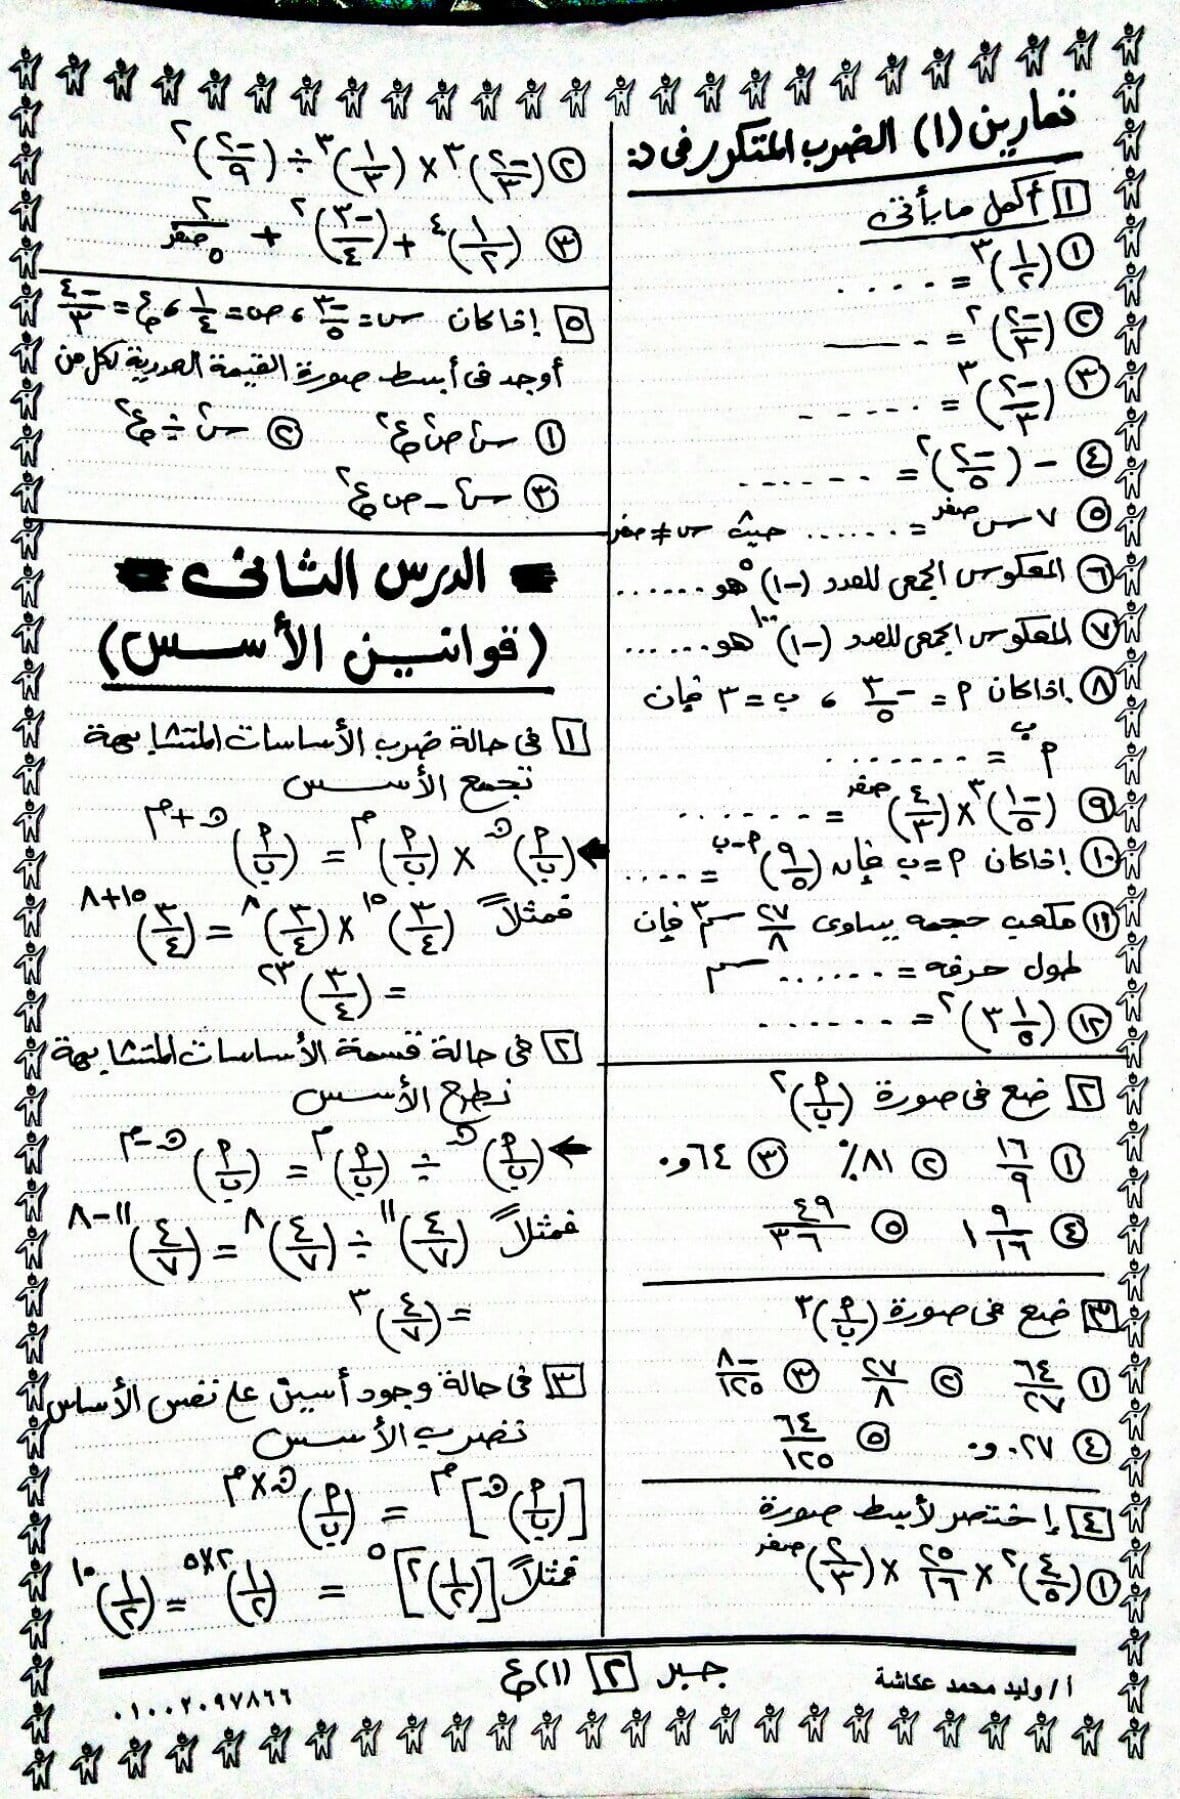 تمارين (١) الضرب المتكرر فى ن:
١ أكمل ما يأتى
١ (١/٢)^٣ = ....
٢ (-٢/٣)^٢ = ....
٣ (-٢/٣)^٣ = ......
٤ - (-٢/٥)^٢ = ......
٥ ٧ س^صفر = ...... حيث س ≠ صفر
٦ المعكوس الجمعى للعدد (-١)^٥ هو ......
٧ المعكوس الجمعى للعدد (-١)^١٠٠ هو ......
٨ إذا كان م = -٣/٥ ، ب = ٣ فإن
م^ب = .......
٩ (-١/٥)^٣ × (٤/٣)^صفر = ......
١٠ إذا كان م = ب فإن (٩/٥)^(م-ب) = ....
١١ مكعب حجمه يساوى ٢٧/٨ سم^٣ فإن
طول حرفه = ...... سم
١٢ (٣ ١/٥)^٢ = ......
٢ ضع فى صورة (م/ب)^٢
١ ١٦/٩ ٢ ٨١٪ ٣ ٦٤و٠
٤ ١ ٩/١٦ ٥ ٤٩/٣٦
٣ ضع فى صورة (م/ب)^٣
١ ٦٤/٢٧ ٢ ٢٧/٨ ٣ -٨/١٢٥
٤ ٠٢٧و٠ ٥ ٦٤/١٢٥
٤ إختصر لأبسط صورة
١ (٤/٥)^٢ × ٢٥/١٦ × (٢/٣)^صفر
٢ (-٢/٣)^٣ × (١/٣)^٣ ÷ (-٢/٩)^٢
٣ (١/٢)^٤ + (-٣/٤)^٢ + ٢/٥^صفر
٥ إذا كان س = -٣/٥ ، ص = ١/٤ ، ع = -٤/٣
أوجد فى أبسط صورة القيمة العددية لكل من
١ س^٢ ص^٢ ع^٢ ٢ س^٢ ÷ ع^٢
٣ س^٢ - ص ع^٢
الدرس الثانى
(قوانين الأسس)
١ فى حالة ضرب الأساسات المتشابهة
تجمع الأسس
(م/ب)^ن × (م/ب)^م = (م/ب)^(ن+م)
فمثلاً (٣/٤)^١٥ × (٣/٤)^٨ = (٣/٤)^(١٥+٨)
= (٣/٤)^٢٣
٢ فى حالة قسمة الأساسات المتشابهة
نطرح الأسس
(م/ب)^ن ÷ (م/ب)^م = (م/ب)^(ن-م)
فمثلاً (٤/٧)^١١ ÷ (٤/٧)^٨ = (٤/٧)^(١١-٨)
= (٤/٧)^٣
٣ فى حالة وجود أسين على نفس الأساس
تضرب الأسس
[(م/ب)^ن]^م = (م/ب)^(ن×م)
فمثلاً [(١/٢)^٢]^٥ = (١/٢)^(٢×٥) = (١/٢)^١٠
أ/ وليد محمد عكاشة
جبر ٢ (١) ع
٠١٠٠٢٠٩٧٨٦٦